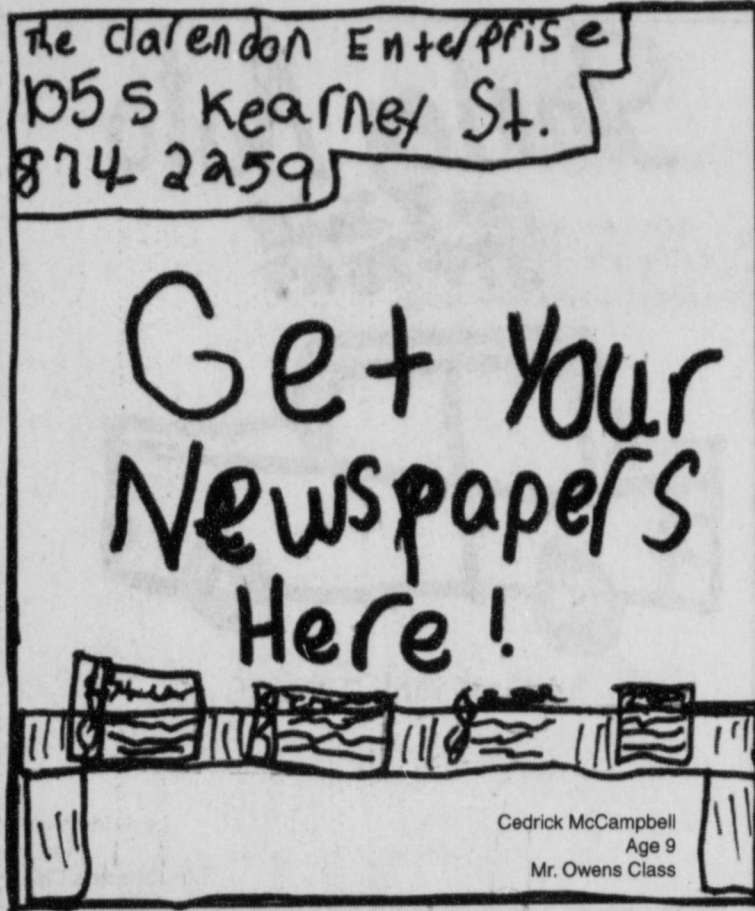 The Clarendon Enterprise
105 S Kearney St.
874-2259
Get Your
Newspapers
Here!
Cedrick McCampbell
Age 9
Mr. Owens Class